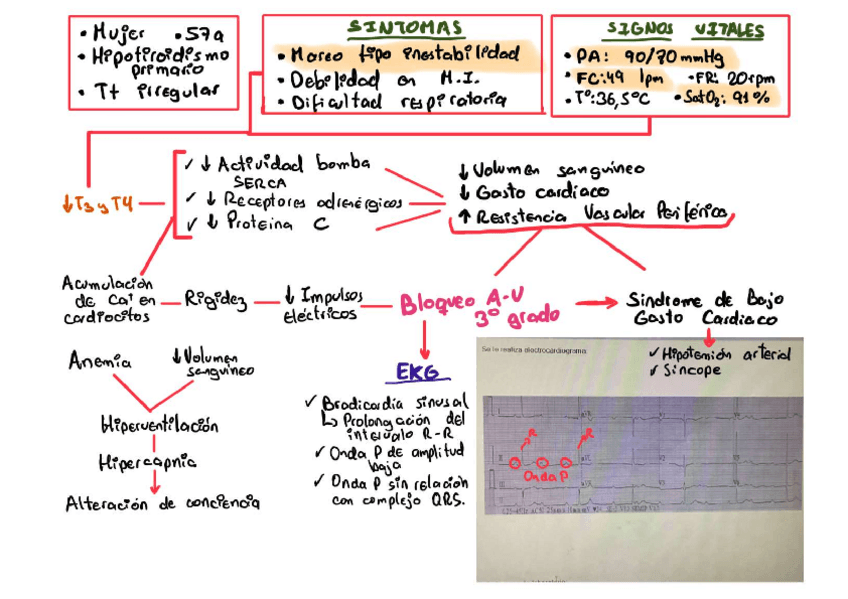 • Mujer • 57a
• Hipotiroidismo
primario
• Tt irregular
SINTOMAS
• Mareo tipo inestabilidad
• Debilidad en M.I.
• Dificultad respiratoria
SIGNOS VITALES
• PA: 90/70 mmHg
• FC: 49 lpm • FR: 20 rpm
• T°: 36,5°C • SatO2: 91%
↓T3 y T4
✓ ↓ Actividad bomba
SERCA
✓ ↓ Receptores adrenérgicos
✓ ↓ Proteina C
↓ Volumen sanguíneo
↓ Gasto cardíaco
↑ Resistencia Vascular Periférica
Acumulación
de Ca+ en
cardiocitos
Rigidez
↓ Impulsos
eléctricos
Bloqueo A-V
3° grado
Síndrome de Bajo
Gasto Cardiaco
✓ Hipotensión arterial
✓ Sincope
Anemia
↓ Volumen
sanguíneo
Hiperventilación
Hipercapnia
Alteración de conciencia
EKG
✓ Bradicardia sinusal
↳ Prolongación del
intervalo R-R
✓ Onda P de amplitud
baja
✓ Onda P sin relación
con complejo QRS.
Se le realiza electrocardiograma:
R
R
Onda P